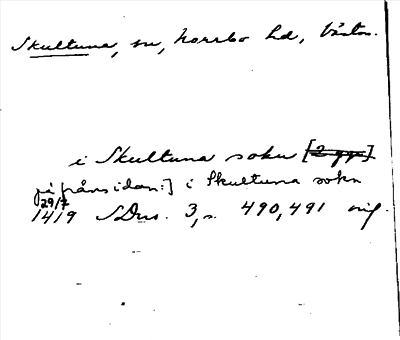 Skultuna, sn, Norrbo hd, Västm.
i Skultuna sokn [2 ggr]
på frånsidan:] i Skultuna sokn
29/7
1419 SDns. 3, s. 490, 491 orig.